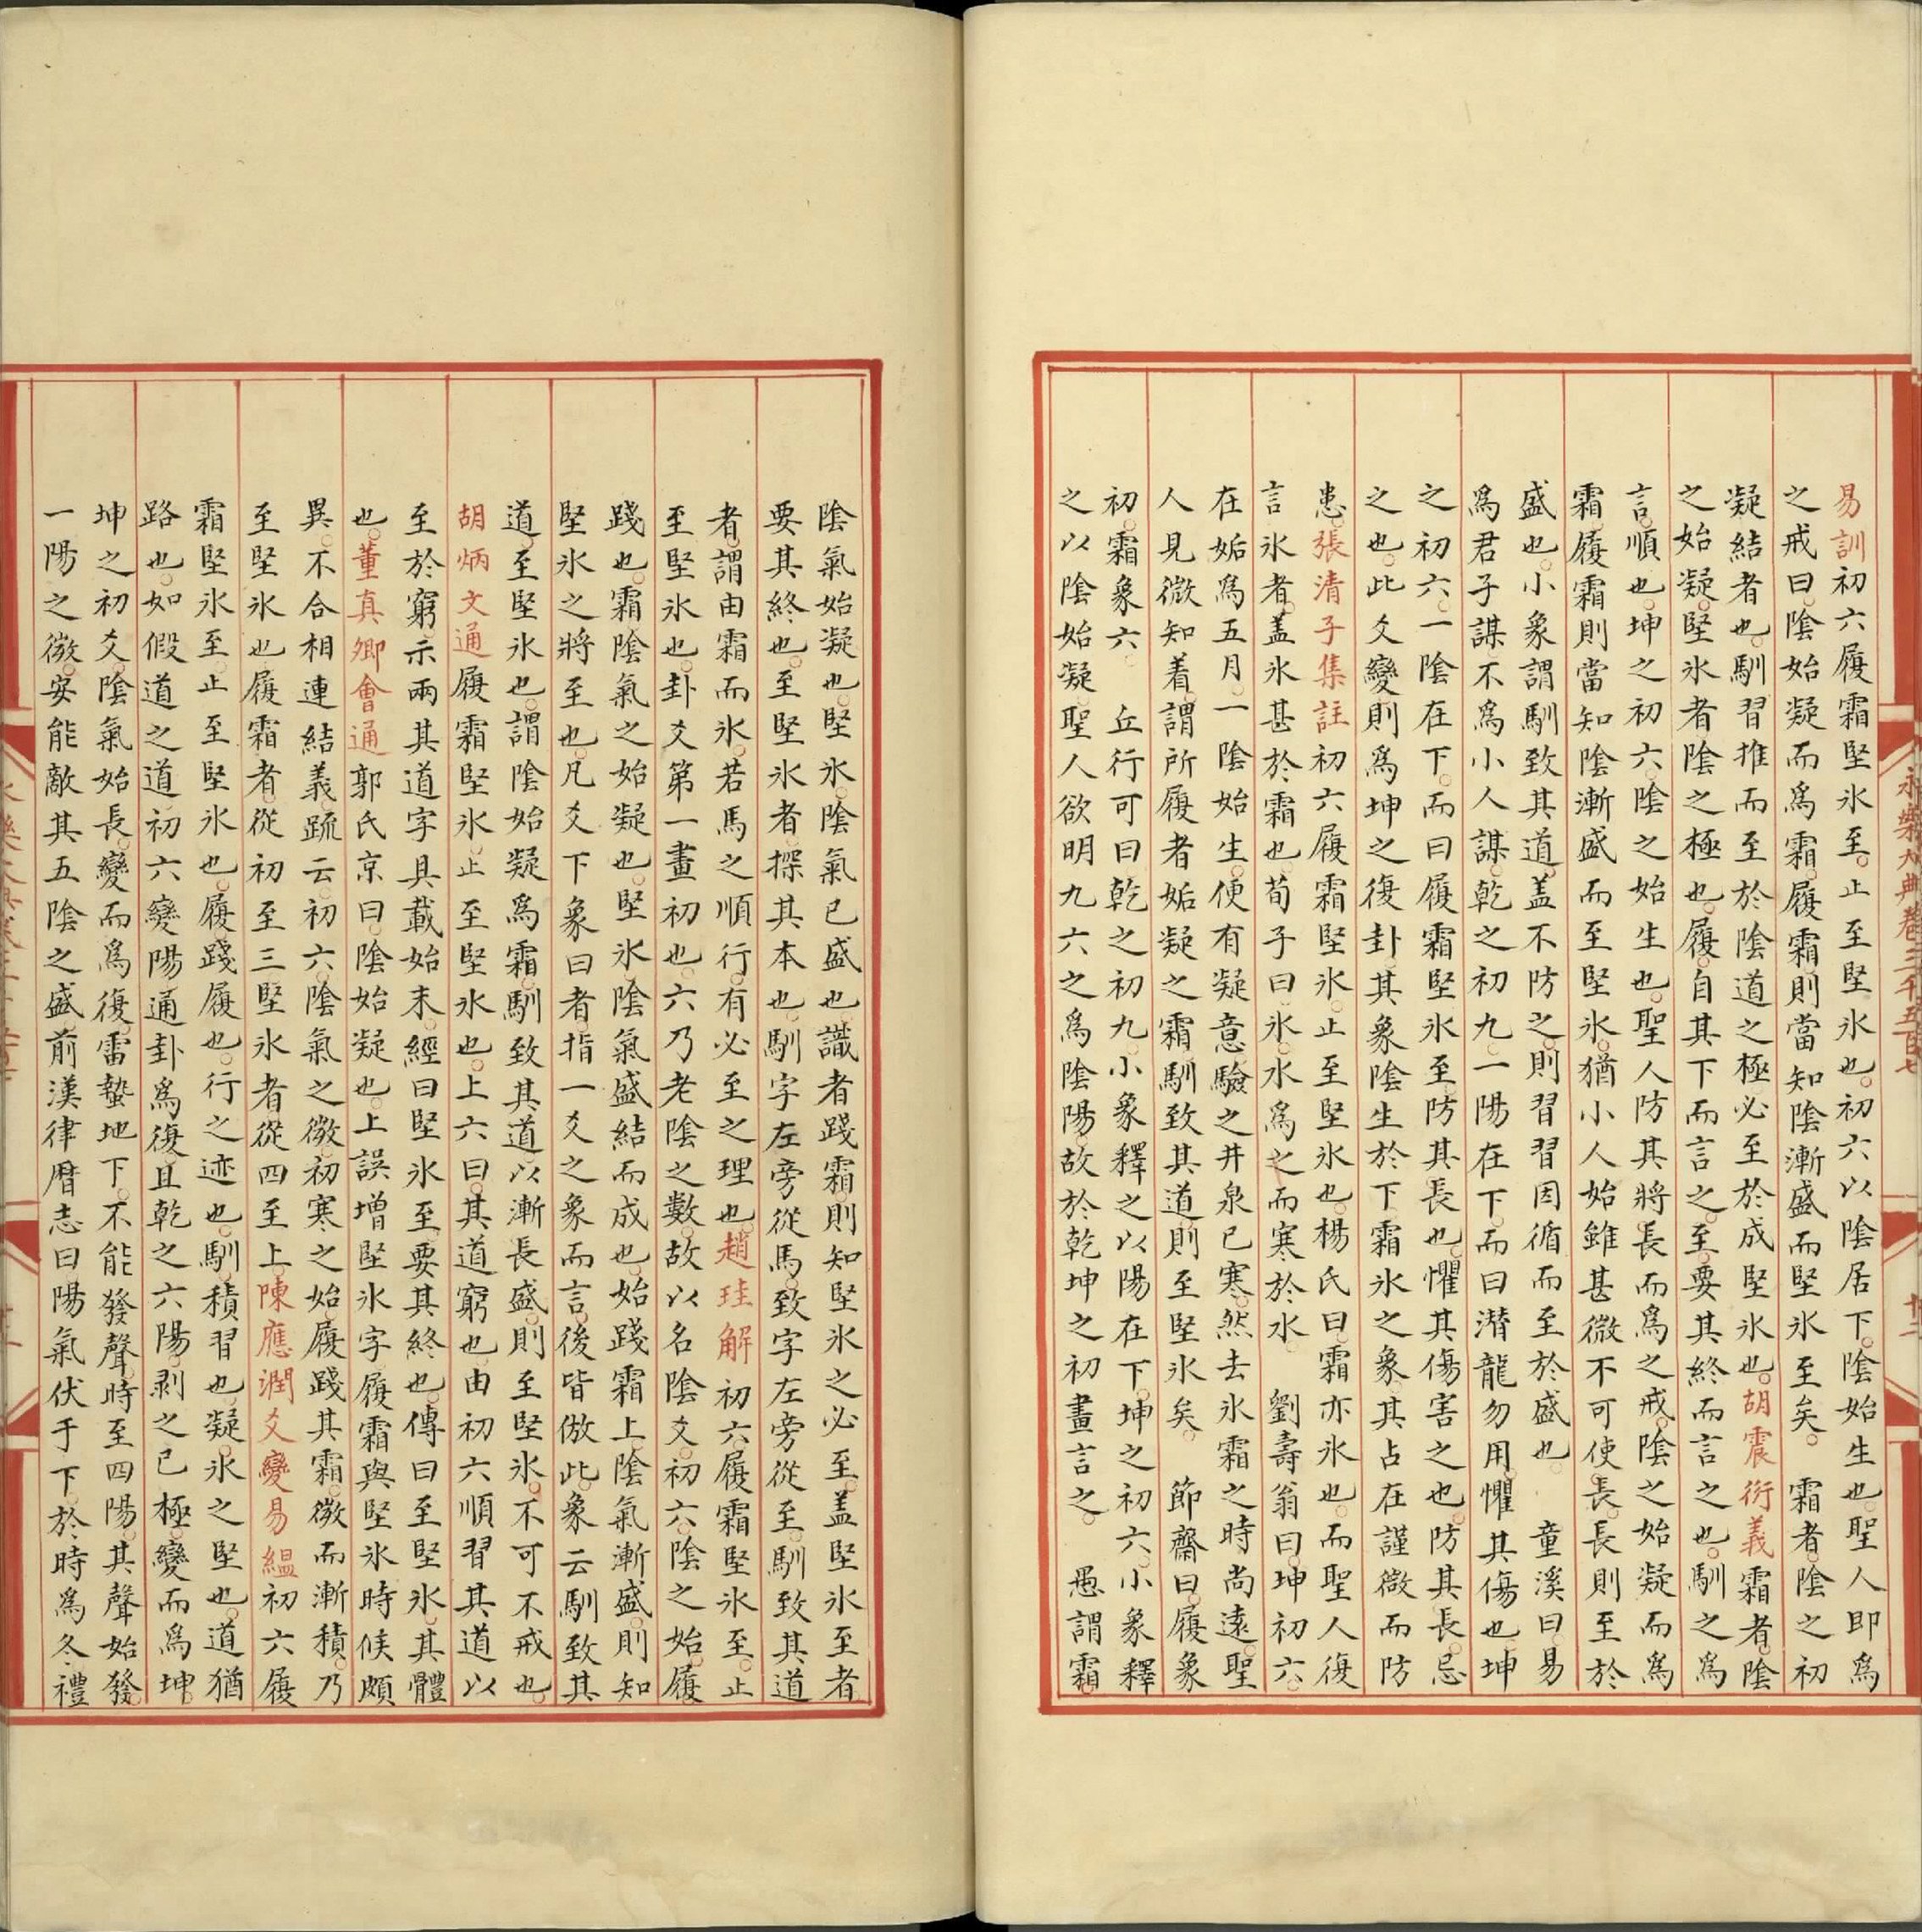 易訓初六履霜堅氷至止至堅氷也初六以陰居下陰始生也聖人即爲
之戒曰陰始凝而爲霜履霜則當知陰漸盛而堅氷至矣　霜者陰之初
凝結者也馴習推而至於陰道之極必至於成堅氷也胡震衍義霜者陰
之始凝堅氷者陰之極也履自其下而言之至要其終而言之也馴之爲
言順也坤之初六陰之始生也聖人防其將長而爲之戒陰之始凝而爲
霜履霜則當知陰漸盛而至堅氷猶小人始雖甚微不可使長長則至於
盛也小象謂馴致其道盖不防之則習習因循而至於盛也　童溪曰易
爲君子謀不爲小人謀乾之初九一陽在下而曰潜龍勿用懼其傷也坤
之初六一陰在下而曰履霜堅氷至防其長也懼其傷害之也防其長忌
之也此爻變則爲坤之復卦其象陰生於下霜氷之象其占在謹微而防
患張清子集註初六履霜堅氷止至堅氷也楊氏曰霜亦氷也而聖人復
言氷者盖氷甚於霜也荀子曰氷水爲之而寒於水　劉壽翁曰坤初六
在姤爲五月一陰始生便有凝意驗之井泉已寒然去氷霜之時尚遠聖
人見微知着謂所履者姤凝之霜馴致其道則至堅氷矣　節齋曰履象
初霜象六　丘行可曰乾之初九小象釋之以陽在下坤之初六小象釋
之以陰始凝聖人欲明九六之爲陰陽故於乾坤之初畫言之　愚謂霜
陰氣始凝也堅氷陰氣已盛也識者踐霜則知堅氷之必至盖堅氷至者
要其終也至堅氷者探其本也馴字左旁從馬致字左旁從至馴致其道
者謂由霜而氷若馬之順行有必至之理也趙珪解初六履霜堅氷至止
至堅氷也卦爻第一畫初也六乃老陰之數故以名陰爻初六陰之始履
踐也霜陰氣之始凝也堅氷陰氣盛結而成也始踐霜上陰氣漸盛則知
堅氷之將至也凡爻下象曰者指一爻之象而言後皆倣此象云馴致其
道至堅氷也謂陰始凝爲霜馴致其道以漸長盛則至堅氷不可不戒也
胡炳文通履霜堅氷止至堅氷也上六曰其道窮也由初六順習其道以
至於窮示兩其道字具載始末經曰堅氷至要其終也傳曰至堅氷其體
也董真卿會通郭氏京曰陰始凝也上誤增堅氷字履霜與堅氷時候頗
異不合相連結義疏云初六陰氣之微初寒之始履踐其霜微而漸積乃
至堅氷也履霜者從初至三堅氷者從四至上陳應潤爻變易縕初六履
霜堅氷至止至堅氷也履踐履也行之迹也馴積習也凝氷之堅也道猶
路也如假道之道初六變陽通卦爲復且乾之六陽剥之已極變而爲坤
坤之初爻陰氣始長變而爲復雷蟄地下不能發聲時至四陽其聲始發
一陽之微安能敵其五陰之盛前漢律曆志曰陽氣伏于下於時爲冬禮